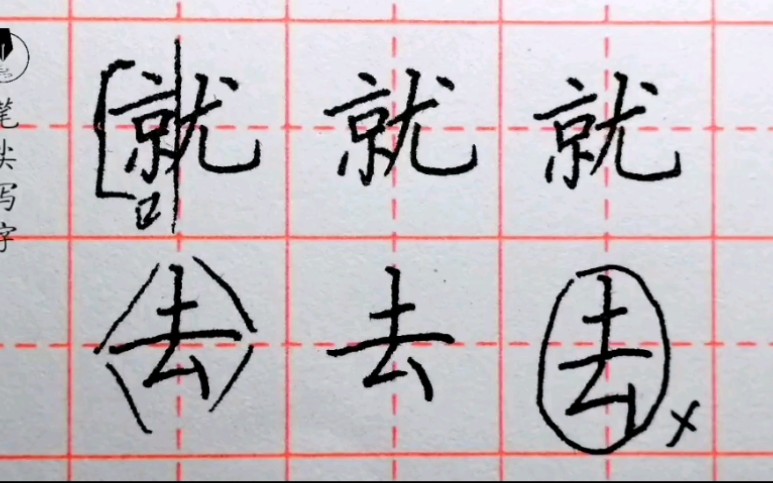 就 就 就
口
去 去 去
×
笔尖写字